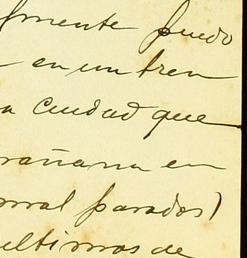 mente puedo
en un tren
a ciudad que
mañana en
mal parados)
ultimos de